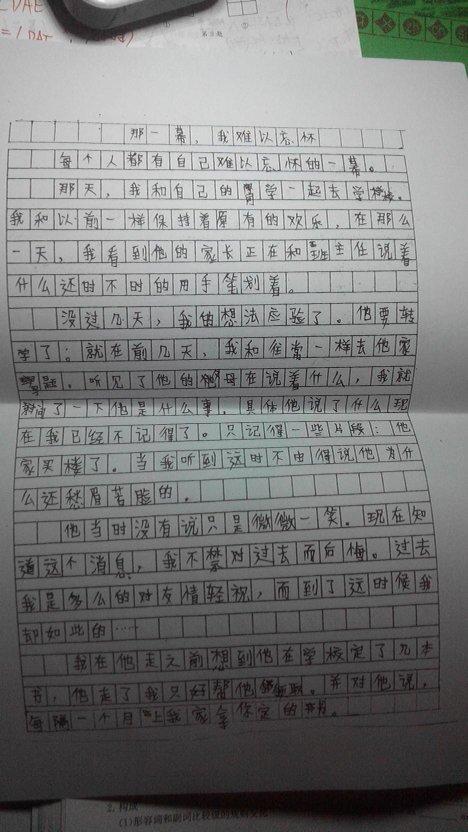 那一幕，我难以忘怀
每个人都有自己难以忘怀的一幕。
那天，我和自己的同学一起去学校。
我和以前一样保持着原有的欢乐，在那么
一天，我看到他的家长正在和班主任说着
什么还时不时的用手笔划着。
没过几天，我的想法应验了。他要转
学了；就在前几天，我和往常一样去他家
，听见了他的父母在说着什么，我就
问了一下他是什么事，具体他说了什么现
在我已经不记得了。只记得一些片段：他
家买楼了。当我听到这时不由得说他为什
么还愁眉苦脸的。
他当时没有说只是微微一笑。现在知
道这个消息，我不禁对过去而后悔。过去
我是多么的对友情轻视，而到了这时候我
却如此的……
我在他走之前想到他在学校定了几本
书，他走了我只好帮他领取。并对他说，
每隔一个月上我家拿你定的书。